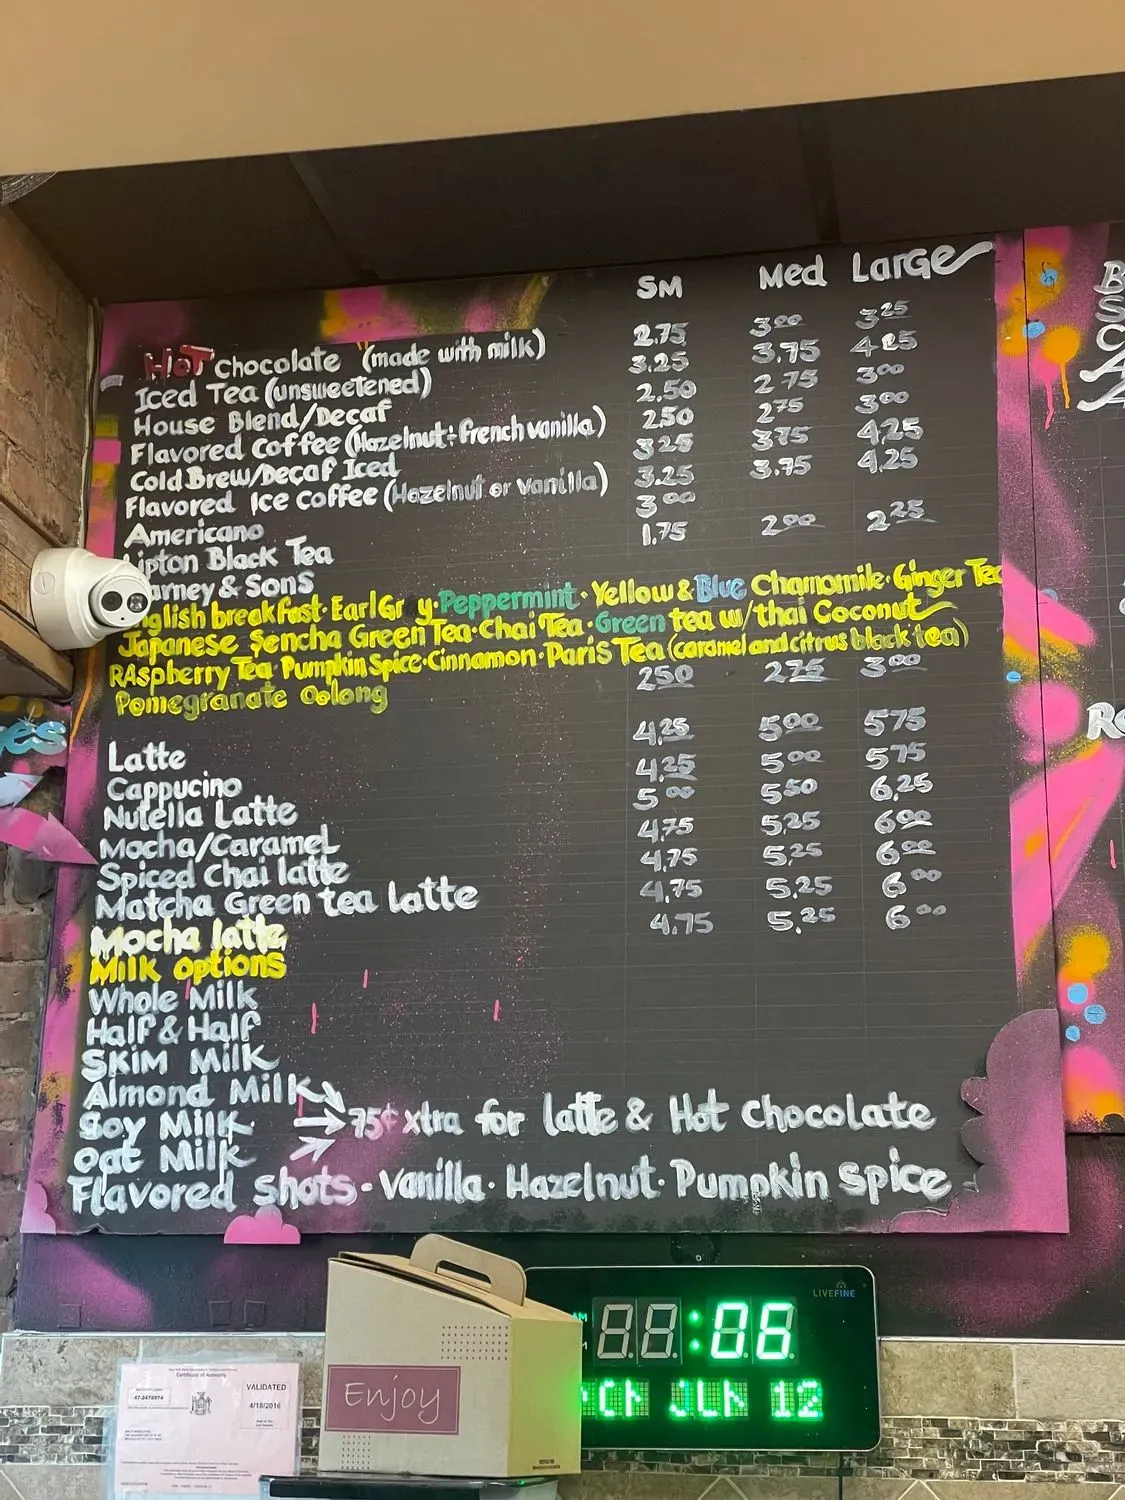 SM Med Large
Hot Chocolate (made with milk) 2.75 3.00 3.25
Iced Tea (unsweetened) 3.25 3.75 4.25
House Blend/Decaf 2.50 2.75 3.00
Flavored Coffee (Hazelnut + french vanilla) 2.50 2.75 3.00
Cold Brew/Decaf Iced 3.25 3.75 4.25
Flavored Ice Coffee (Hazelnut or Vanilla) 3.25 3.75 4.25
Americano 3.00
Lipton Black Tea 1.75 2.00 2.25
arney & Sons
nglish breakfast · Earl Gr y · Peppermint · Yellow & Blue Chamomile · Ginger Tea
Japanese Sencha Green Tea · Chai Tea · Green tea w/thai Coconut
RAspberry Tea Pumpkin Spice · Cinnamon · Paris Tea (caramel and citrus black tea)
Pomegranate Oolong 2.50 2.75 3.00
Latte 4.25 5.00 5.75
Cappucino 4.25 5.00 5.75
Nutella Latte 5.00 5.50 6.25
Mocha/Caramel 4.75 5.25 6.00
Spiced Chai latte 4.75 5.25 6.00
Matcha Green tea Latte 4.75 5.25 6.00
Mocha latte 4.75 5.25 6.00
Milk options
Whole Milk
Half & Half
SKiM Milk
Almond Milk
Soy Milk 75¢ xtra for latte & Hot Chocolate
Oat Milk
Flavored Shots - Vanilla · Hazelnut · Pumpkin Spice
yes
Enjoy
LIVEFINE
:06
JUN 12
Certificate of Authority
VALIDATED
4/18/2016